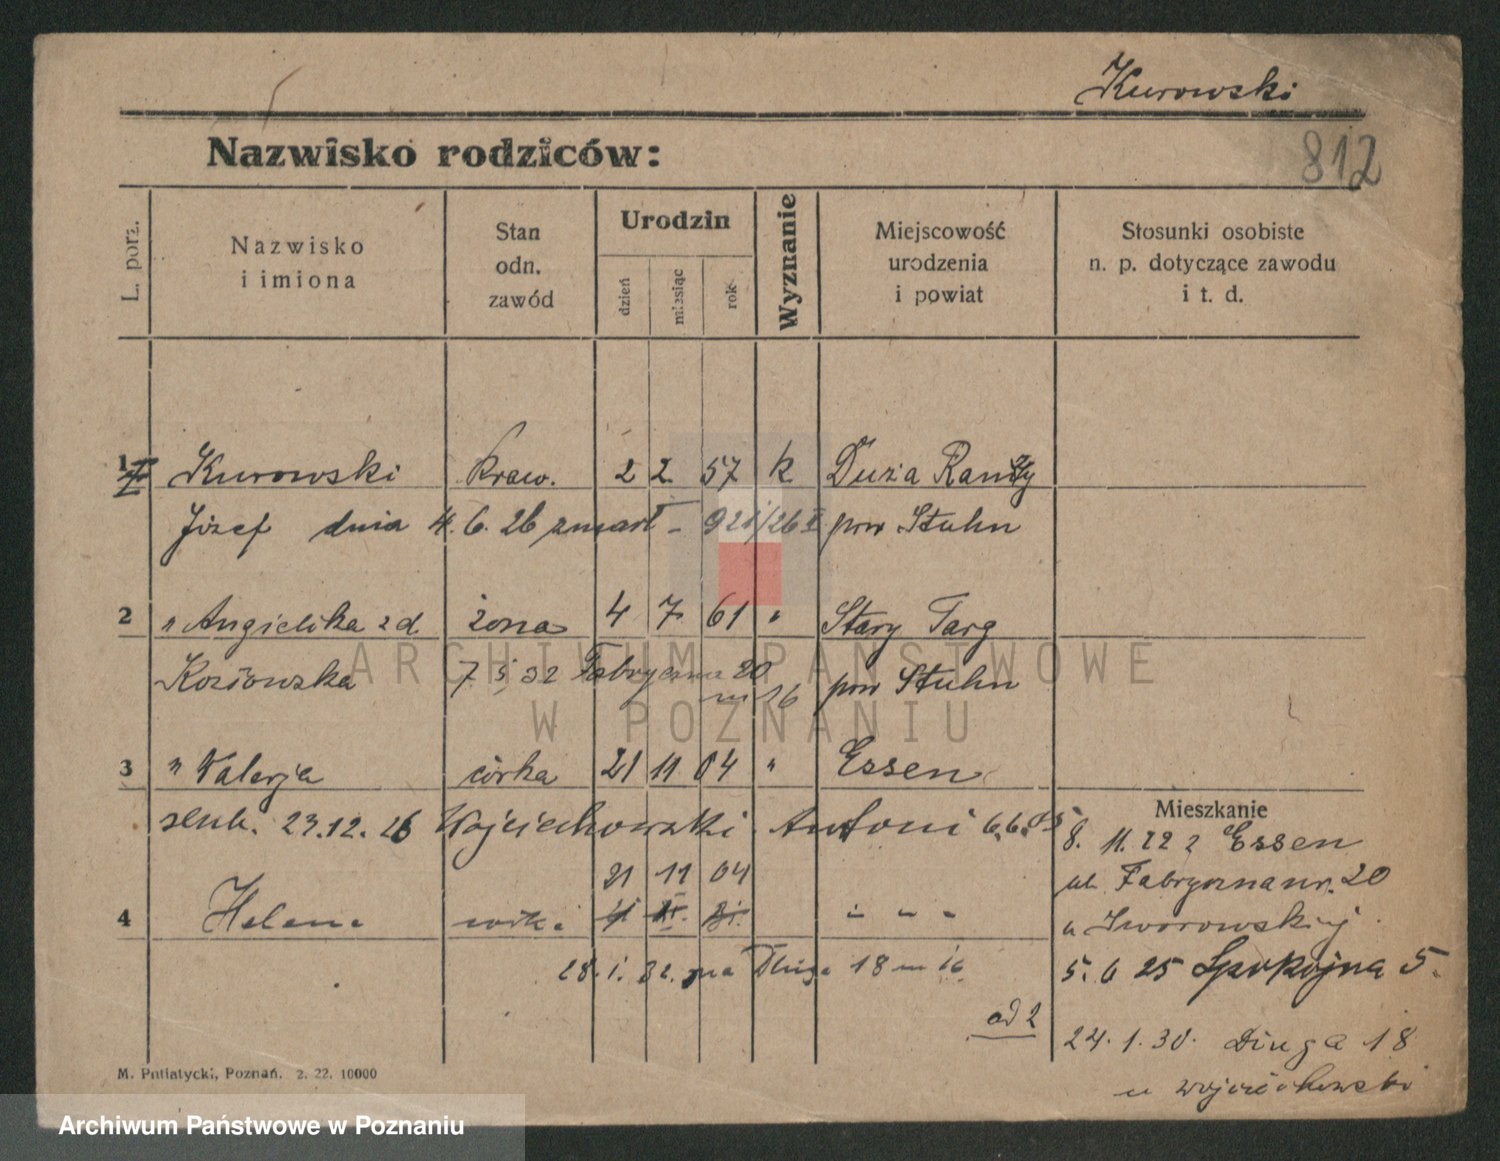 Kurowski
812
Nazwisko rodziców:
L. porz.
Nazwisko i imiona
Stan odn. zawód
Urodzin
dzień
miesiąc
rok
Wyznanie
Miejscowość urodzenia i powiat
Stosunki osobiste n. p. dotyczące zawodu i t. d.
1 Kurowski kraw. 2 2 57 k Duża
Józef dnia 4. 6. 26 zmarł - 921/26 pow Stuhm
2 " Angielika z d. żona 4 7 61 " Stary Targ
Kozłowska 7 5 32 Fabryczna 20 m 16 pow Stuhm
3 " Walerja córka 21 11 04 " Essen
Mieszkanie
ślub. 23.12.26 Wojciechowski Antoni 6.6.
8. 11. 22 z Essen
21 11 04
ul Fabryczna nr. 20
4 Helena córka " " "
u Iworowskiej
28. 1. 32. na Długa 18 m 16
5. 6 25 Spokojna 5.
od 2
24. 1. 30. Długa 18
u Wojciechowski
M. Putiatycki, Poznań. 2. 22. 10000
ARCHIWUM PAŃSTWOWE
W POZNANIU
Archiwum Państwowe w Poznaniu